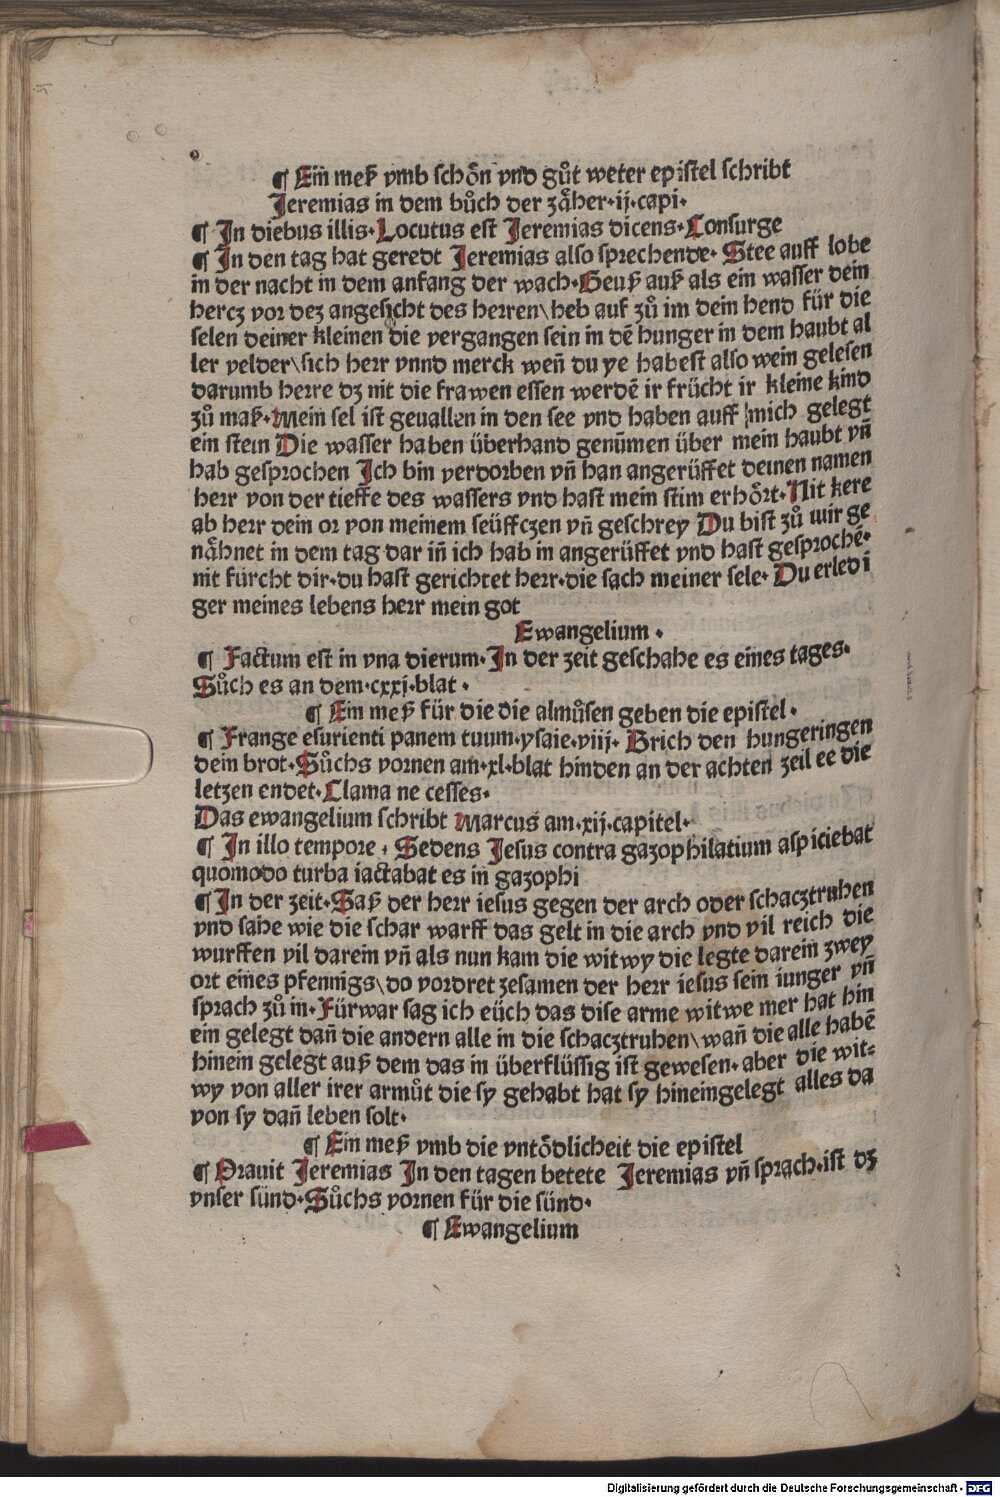 ¶ Ein meß vmb schön vnd gůt weter epistel schribt
Jeremias in dem bůch der zäher·ij·capi·
¶ In diebus illis·Locutus est Jeremias dicens·Consurge
¶ In den tag hat geredt Jeremias also sprechende· Stee auff lobe
in der nacht in dem anfang der wach·Geuß auß als ein wasser dein
hercz vor dez angesicht des herren\heb auf zů im dein hend für die
selen deiner kleinen die vergangen sein in dē hunger in dem haubt al
ler velder\sich herr vnnd merck wen̄ du ye habest also wein gelesen
darumb herre dz nit die frawen essen werdē ir frücht ir kleine kind
zů maß·Mein sel ist geuallen in den see vnd haben auff mich gelegt
ein stein Die wasser haben überhand genūmen über mein haubt vn̄
hab gesprochen Ich bin verdorben vn̄ han angerüffet deinen namen
herr von der tieffe des wassers vnd hast mein stim erhört·Nit kere
ab herr dein or von meinem seüffczen vn̄ geschrey Du bist zů mir ge
nähnet in dem tag dar in̄ ich hab in angerüffet vnd hast gesprochē·
nit fürcht dir·du hast gerichtet herr·die sach meiner sele· Du erledi
ger meines lebens herr mein got
Ewangelium ·
¶ Factum est in vna dierum·In der zeit geschahe es eines tages·
Sůch es an dem·cxxj·blat ·
¶ Ein meß für die die almůsen geben die epistel·
¶ Frange esurienti panem tuum·ysaie·viij· Brich den hungeringen
dein brot·Sůchs vornen am·xl·blat hinden an der achten zeil ee die
letzen endet·Clama ne cesses·
Das ewangelium schribt Marcus am·xij·capitel·
¶ In illo tempore · Sedens Jesus contra gazophilatium aspiciebat
quomodo turba iactabat es in gazophi
¶ In der zeit·Saß der herr iesus gegen der arch oder schacztruhen
vnd sahe wie die schar warff das gelt in die arch vnd vil reich die
wurffen vil darein vn̄ als nun kam die witwy die legte darein zwey
ort eines pfennigs\do vordret zesamen der herr iesus sein iunger vn̄
sprach zů in·Fürwar sag ich eüch das dise arme witwe mer hat hin
ein gelegt dan̄ die andern alle in die schacztruhen\wan̄ die alle habē
hinein gelegt auß dem das in überflüssig ist gewesen· aber die wit⸗
wy von aller irer armůt die sy gehabt hat sy hineingelegt alles da
von sy dan̄ leben solt·
¶ Ein meß vmb die vntödlicheit die epistel
¶ Orauit Jeremias In den tagen betete Jeremias vn̄ sprach·ist dz
vnser sünd·Sůchs vornen für die sünd·
¶ Ewangelium
Digitalisierung gefördert durch die Deutsche Forschungsgemeinschaft - DFG